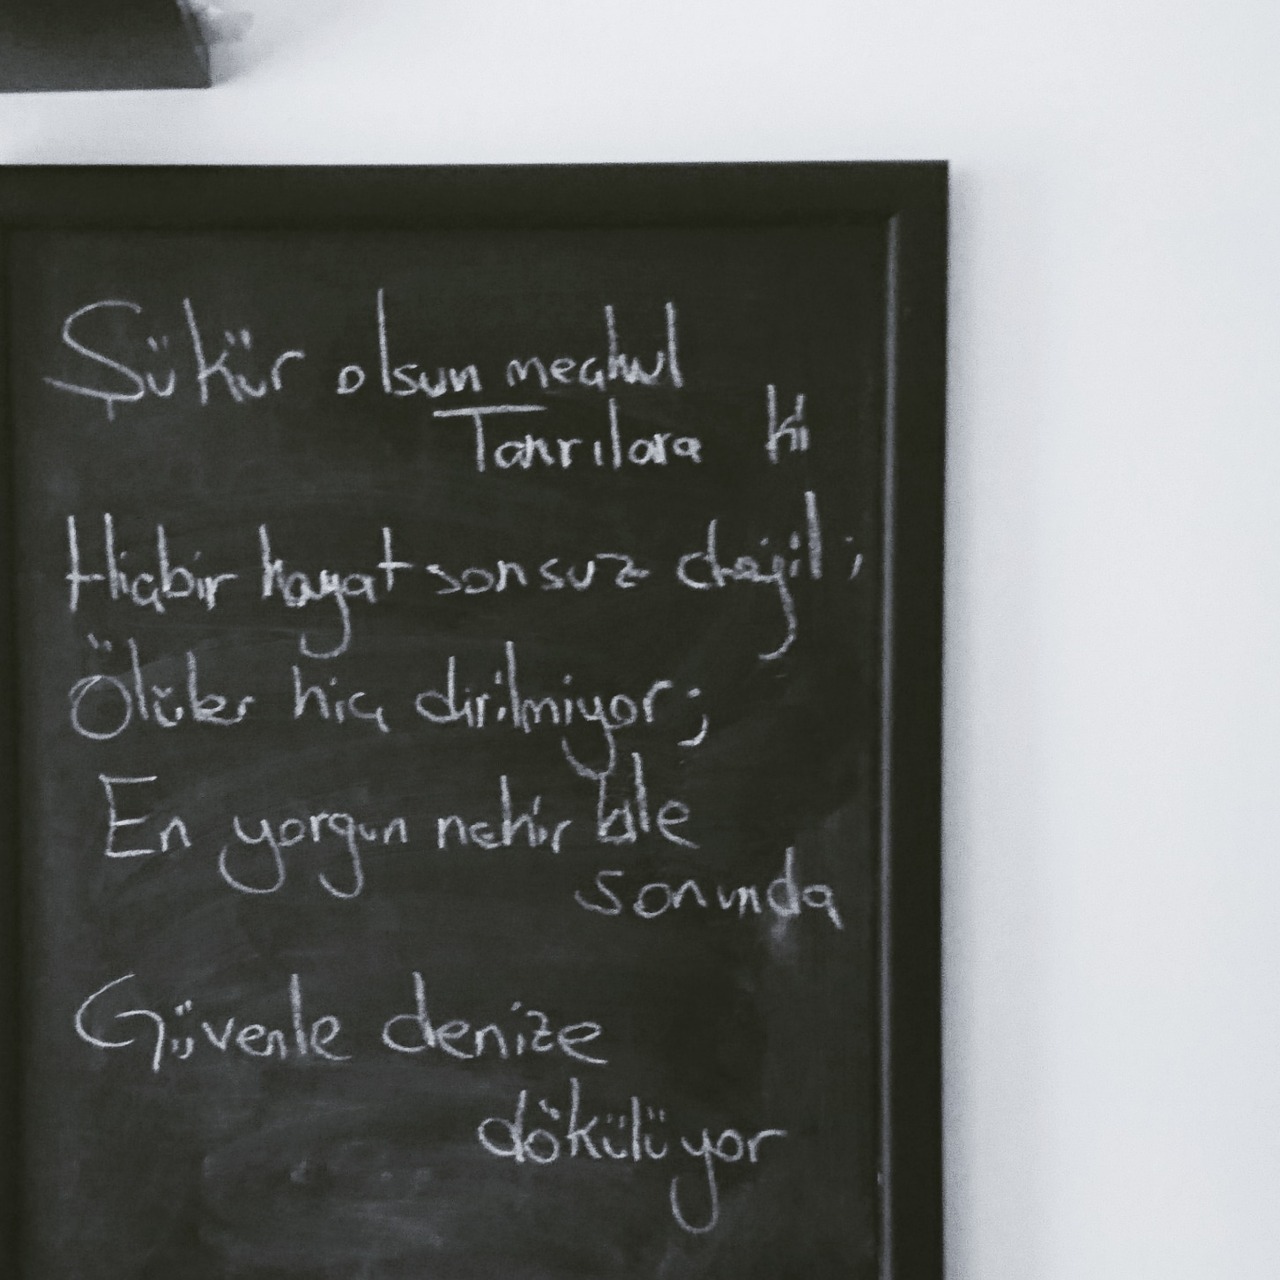 Şükür olsun meçhul
Tanrılara ki
Hiçbir hayat sonsuz değil;
Ölüler hiç dirilmiyor;
En yorgun nehir bile
sonunda
Güvenle denize
dökülüyor